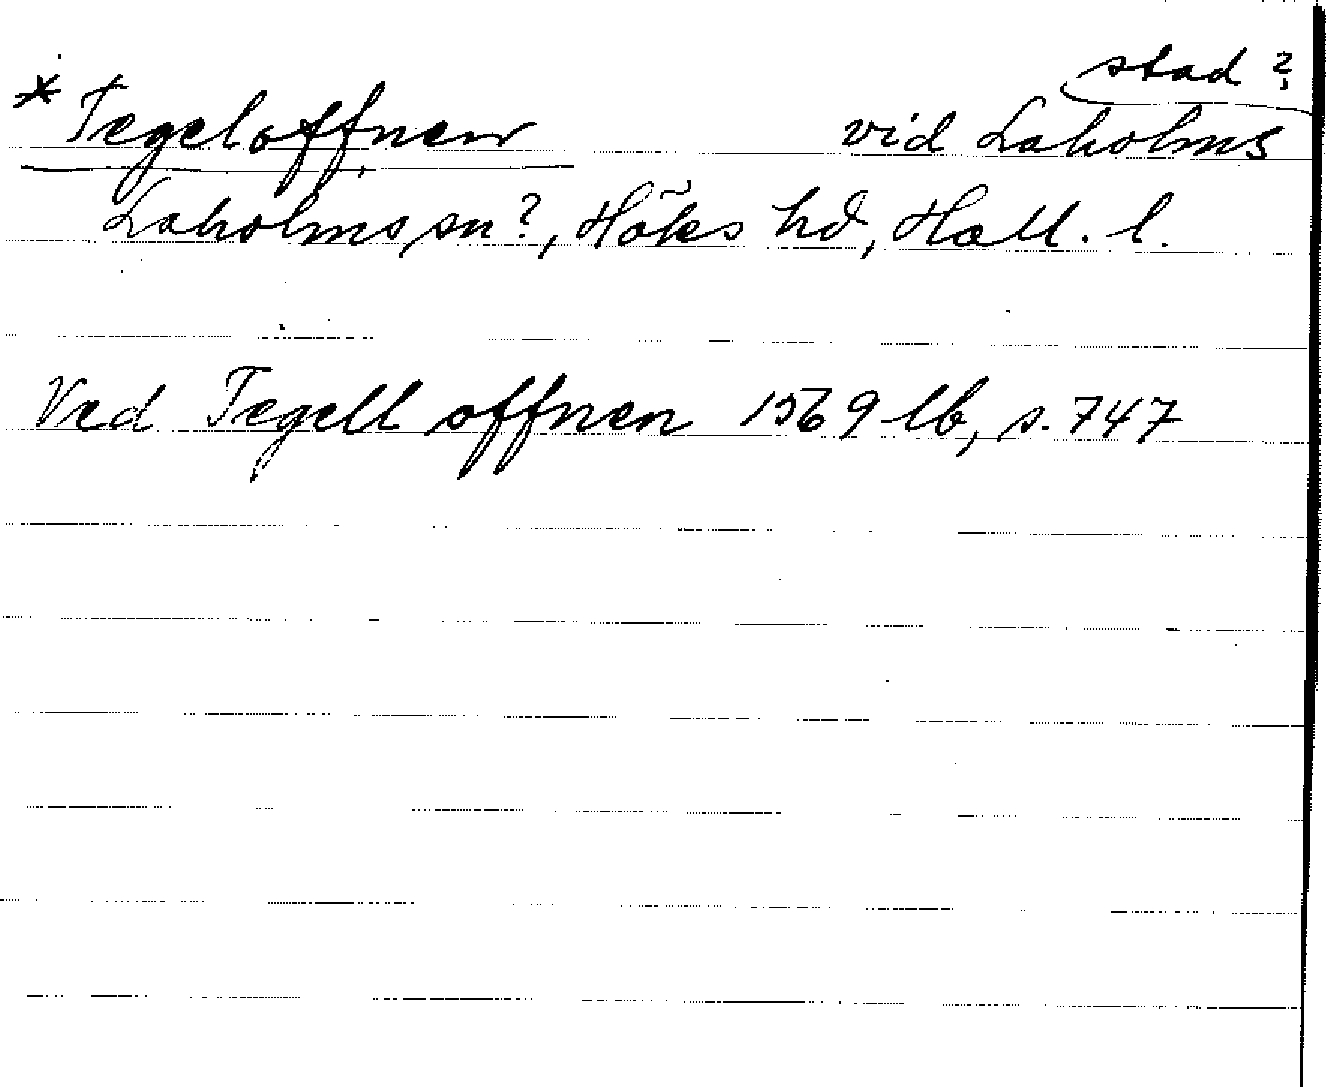 * Tegeloffnen vid Laholms stad?
Laholms sn?, Höks hd, Hall. l.
Ved Tegell offnen 1569 lb, s. 747